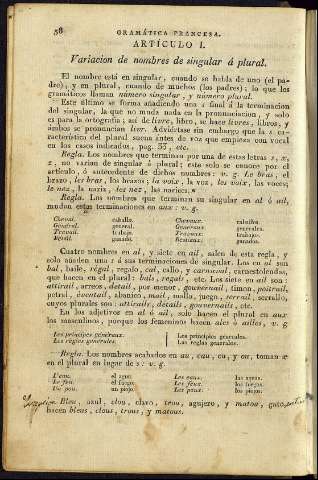 58
GRAMÁTICA FRANCESA.
ARTÍCULO I.
Variacion de nombres de singular á plural.
El nombre está en singular, cuando se habla de uno (el pa-
dre), y en plural, cuando de muchos (los padres); lo que los
gramáticos llaman número singular, y número plural.
Este último se forma añadiendo una s final á la terminacion
del singular, la que no muda nada en la pronunciacion, y solo
es para la ortografía; así de livre, libro, se hace livres, libros, y
ámbos se pronuncian livr. Adviértase sin embargo que la s ca-
racterística del plural suena ántes de voz que empieza con vocal
en los casos indicados, pag. 33, etc.
Regla. Los nombres que terminan por una de estas letras s, z,
x, no varian de singular á plural; este solo se conoce por el
artículo, ó antecedente de dichos nombres: v. g. Le bras, el
brazo, les bras, los brazos; la voix, la voz, les voix, las voces;
le nez, la nariz, les nez, las narices.
Regla. Los nombres que terminan su singular en al ó ail,
mudan estas terminaciones en aux: v. g.
Cheval. caballo. Chevaux. caballos.
Général. general. Généraux. generales.
Travail. trabajo. Travaux. trabajos.
Bétail. ganado. Bestiaux. ganados.
Cuatro nombres en al, y siete en ail, salen de esta regla, y
solo añaden una s á sus terminaciones de singular. Los en al son
bal, baile, régal, regalo, cal, callo, y carnaval, carnestolendas,
que hacen en el plural: bals, régals, etc. Los siete en ail son:
attirail, arreos, détail, por menor, gouvernail, timon, poitrail,
petral, éventail, abanico, mail, malla, juego, serrail, serrallo,
cuyos plurales son: attirails, détails, gouvernails, etc.
En los adjetivos en al ó ail, solo hacen el plural en aux
los masculinos, porque los femeninos hacen ales ó ailles, v. g
Les principes généraux. Los principios generales.
Les règles générales. Las reglas generales.
Regla. Los nombres acabados en au, eau, eu, y ou, toman x
en el plural en lugar de s: v. g.
L'eau. el agua. Les eaux. las aguas.
Le feu. el fuego. Les feux. los fuegos.
Le pou. un piojo. Les poux. los piojos.
Bleu, azul, clou, clavo, trou, agujero, y matou, gato,
hacen bleus, clous, trous, y matous.